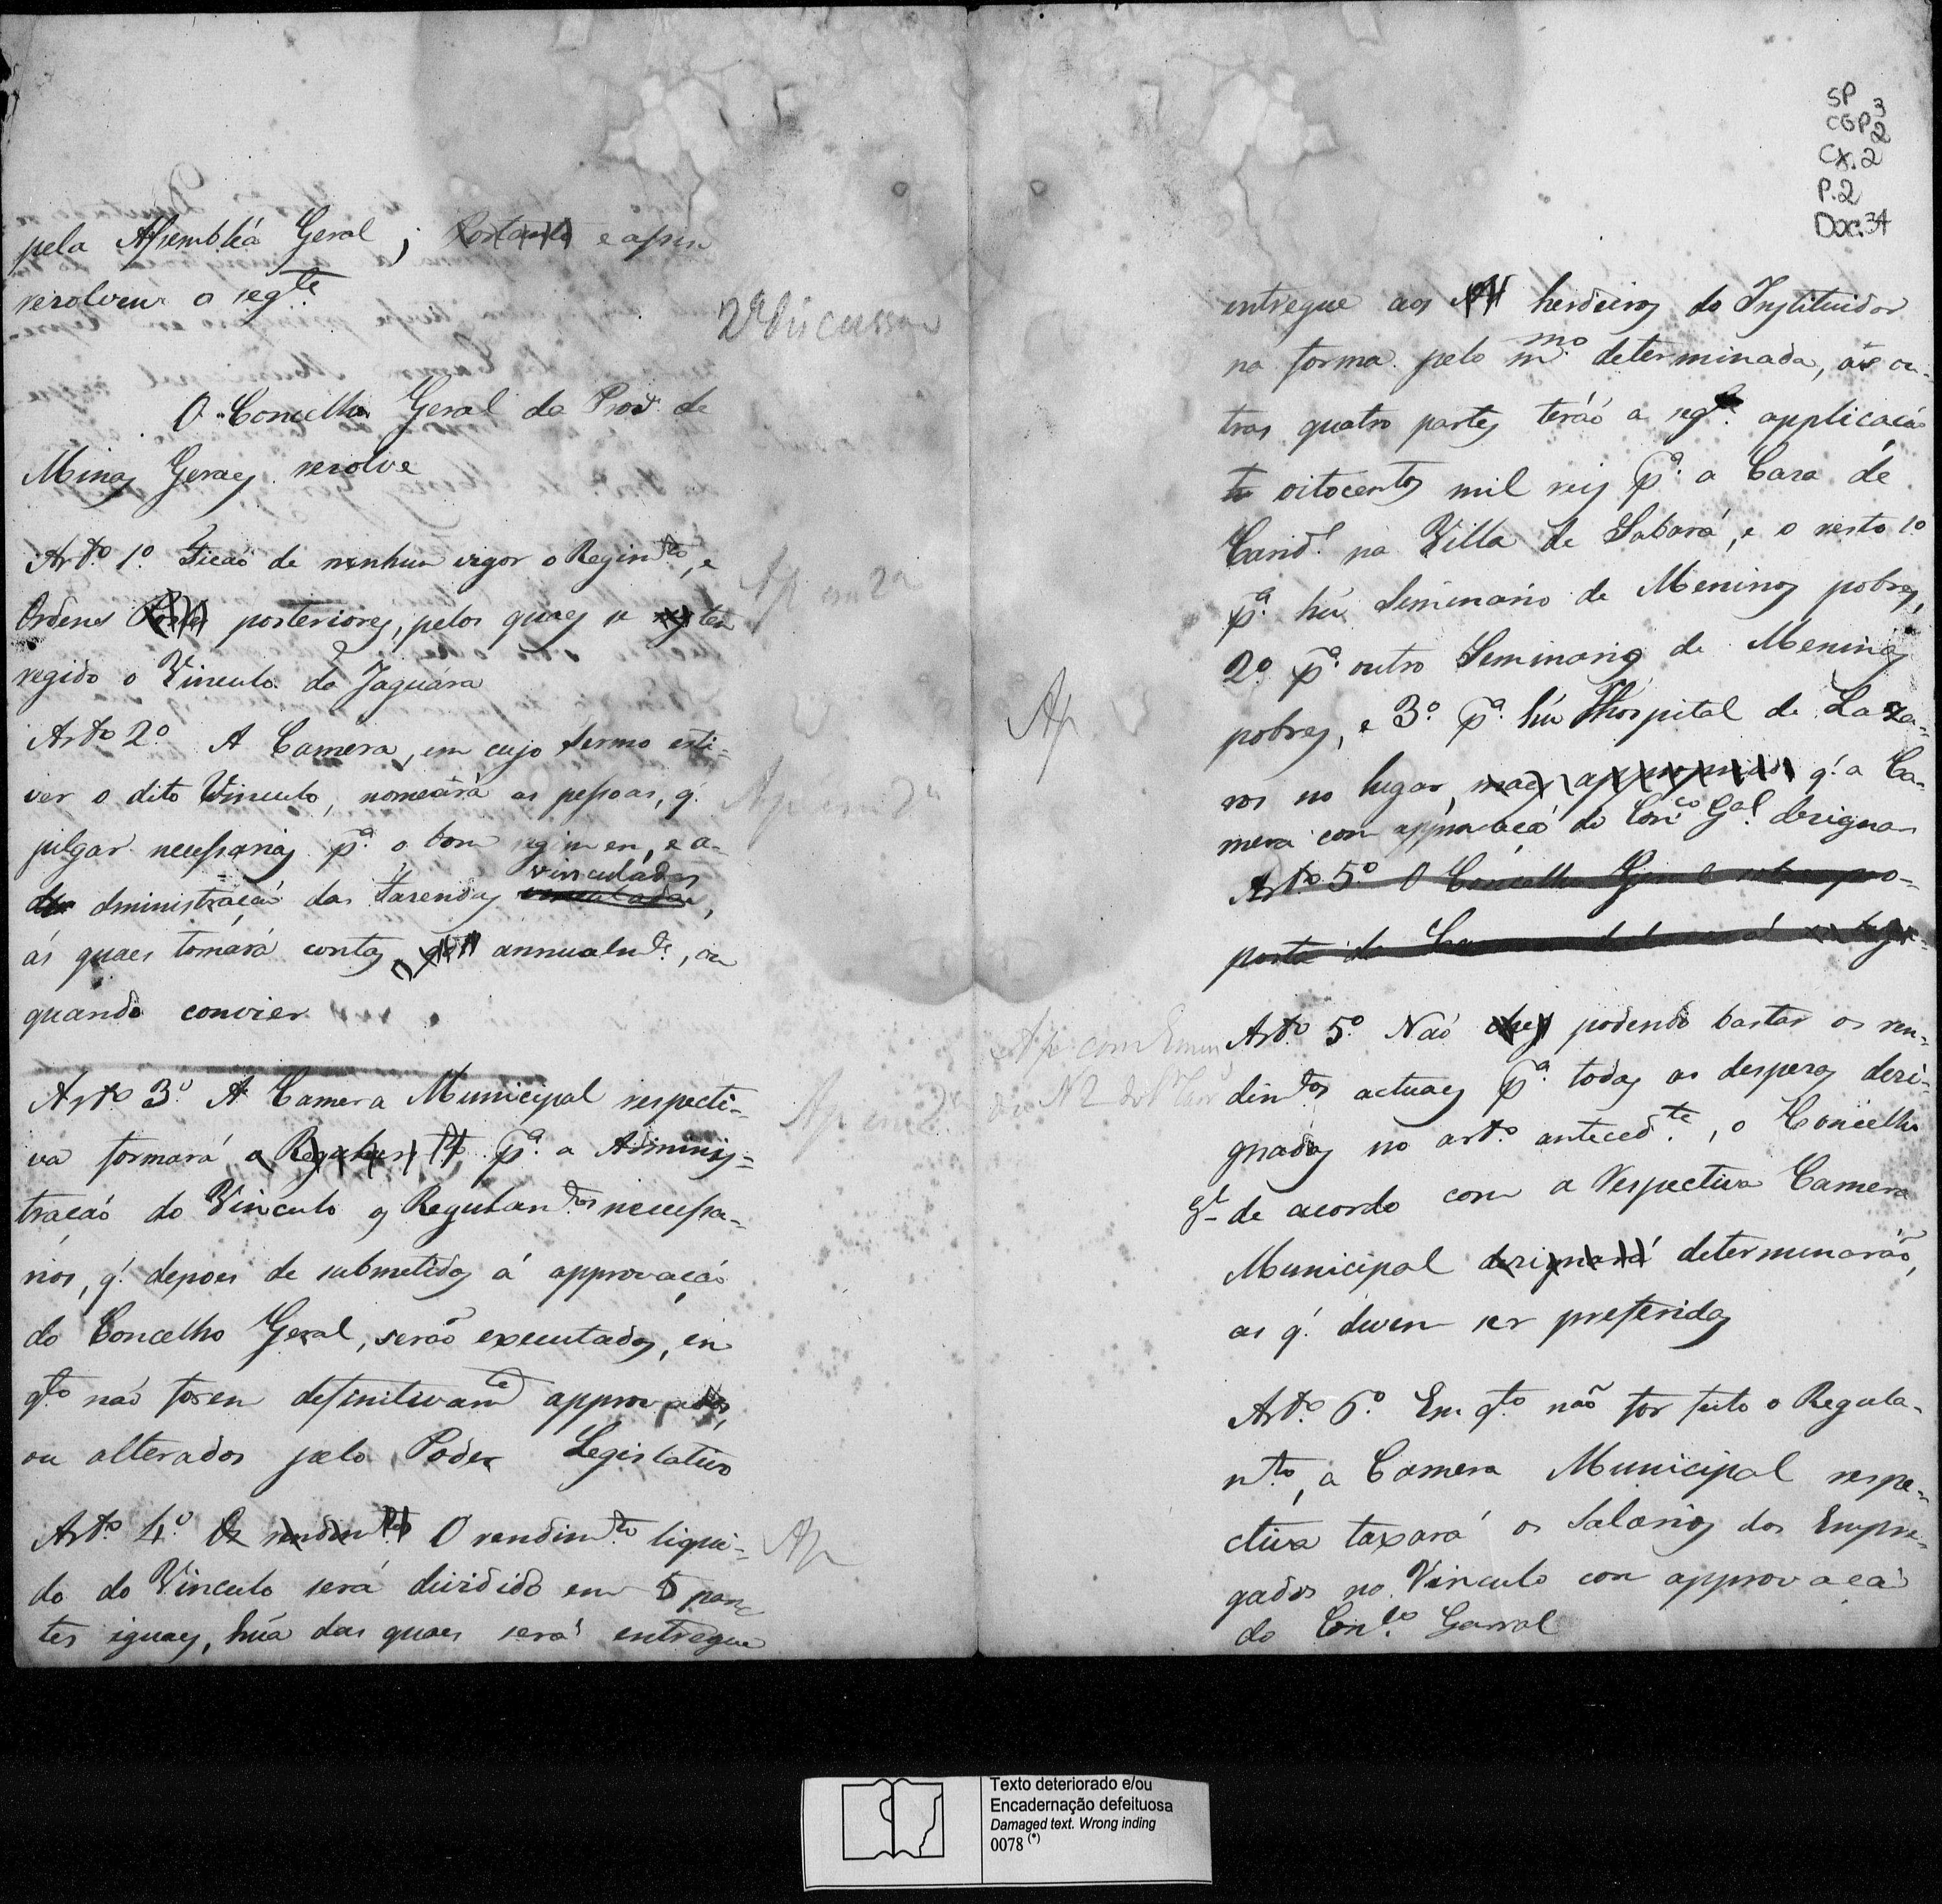 pela Assembléa Geral, e assim
resolveu o seg.te
2ª Discussão
O Concelho Geral da Prov. de
Minas Geraes resolve
Art.º 1º Ficaõ de nenhum vigor o Regim.to, e
Ordens posteriores, pelos quaes se tem
regido o Vinculo da Jaguára
Ap em 2ª
Art.º 2º A Camera, em cujo termo esti-
ver o dito Vinculo, nomeará as pessoas, q.
julgar necessarias p.ª o bom regimen, e a-
vinculadas
dministraçaõ das Fazendas,
ás quaes tomará contas annualm.te, ou
quando convier
Ap em 2ª
Art.º 3º A Camera Municipal respecti-
va formará p.ª a Adminis-
traçaõ do Vinculo os Regulam.tos necessa-
rios, q. depois de submetidos á approvaçaõ
do Concelho Geral, seraõ executados, em
q.to naõ forem definitivam.te approvados,
ou alterados pelo Poder Legislativo
Ap em 2ª
Art.º 4º O rendim.to liqui-
do do Vinculo será dividido em 5 par-
tes iguaes, húa das quaes será entregue
Ap
SP
CGP 3
2
Cx. 2
P. 2
Doc. 34
entregue aos herdeiros do Instituidor
na forma pelo m.mo determinada, as ou-
tras quatro partes teráõ a seg.te applicaçaõ
oitocentos mil reis p.ª a Caza de
Carid.e na Villa de Sabará, e o resto 1º
p.ª hú Seminario de Meninos pobres,
2º p.ª outro Seminario de Meninas
pobres, e 3º p.ª hú Hospital de Laza-
ros no lugar, q. a Ca-
mera com approvaçaõ do Con.co G.al designar
Ap
Art.º 5º O Concelho Geral sob repro-
posta da
Art.º 5º Naõ podendo bastar os ren-
dim.tos actuaes p.ª todas as despezas dezi-
gnadas no art.º anteced.te, o Concelho
G.l de acordo com a Respectiva Camera
Municipal designará determinaráõ,
as q. devem ser preferidas
Ap com Emen
Nº 2 do Sr.
Art.º 6º Em q.to naõ for feito o Regula-
m.to, a Camera Municipal respe-
ctiva taxará os Salarios dos Empre-
gados no Vinculo com approvaçaõ
do Con.lo Geral
Texto deteriorado e/ou
Encadernação defeituosa
Damaged text. Wrong inding
0078 (*)